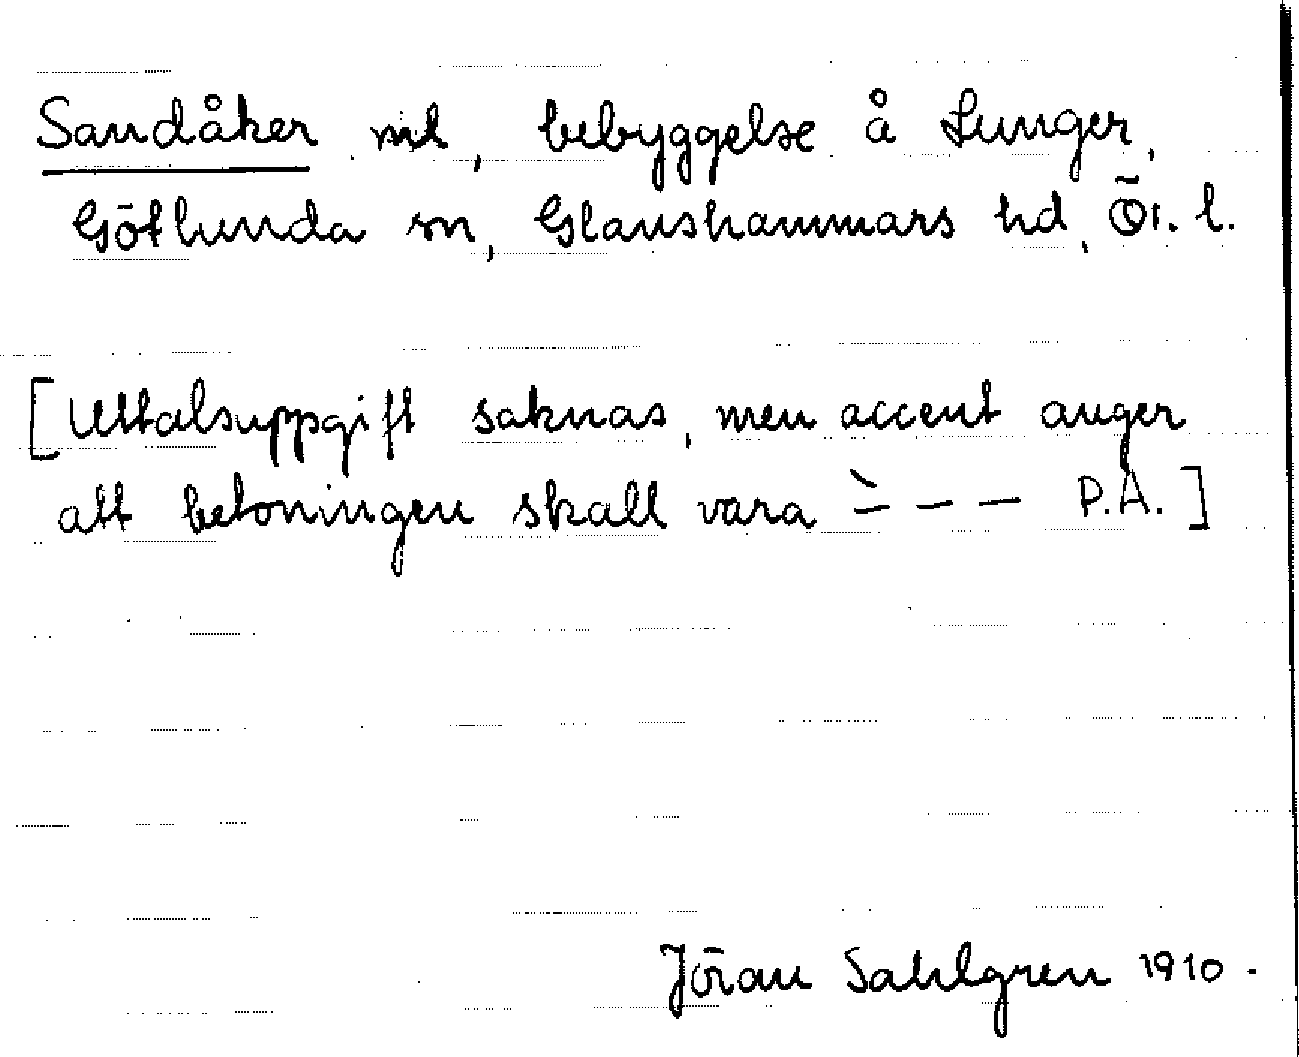 Sandåker ml, bebyggelse å Lunger,
Götlunda sn, Glanshammars hd, Ör. l.
[Uttalsuppgift saknas, men accent anger
att betoningen skall vara `– – – P.A.]
Jöran Sahlgren 1910.